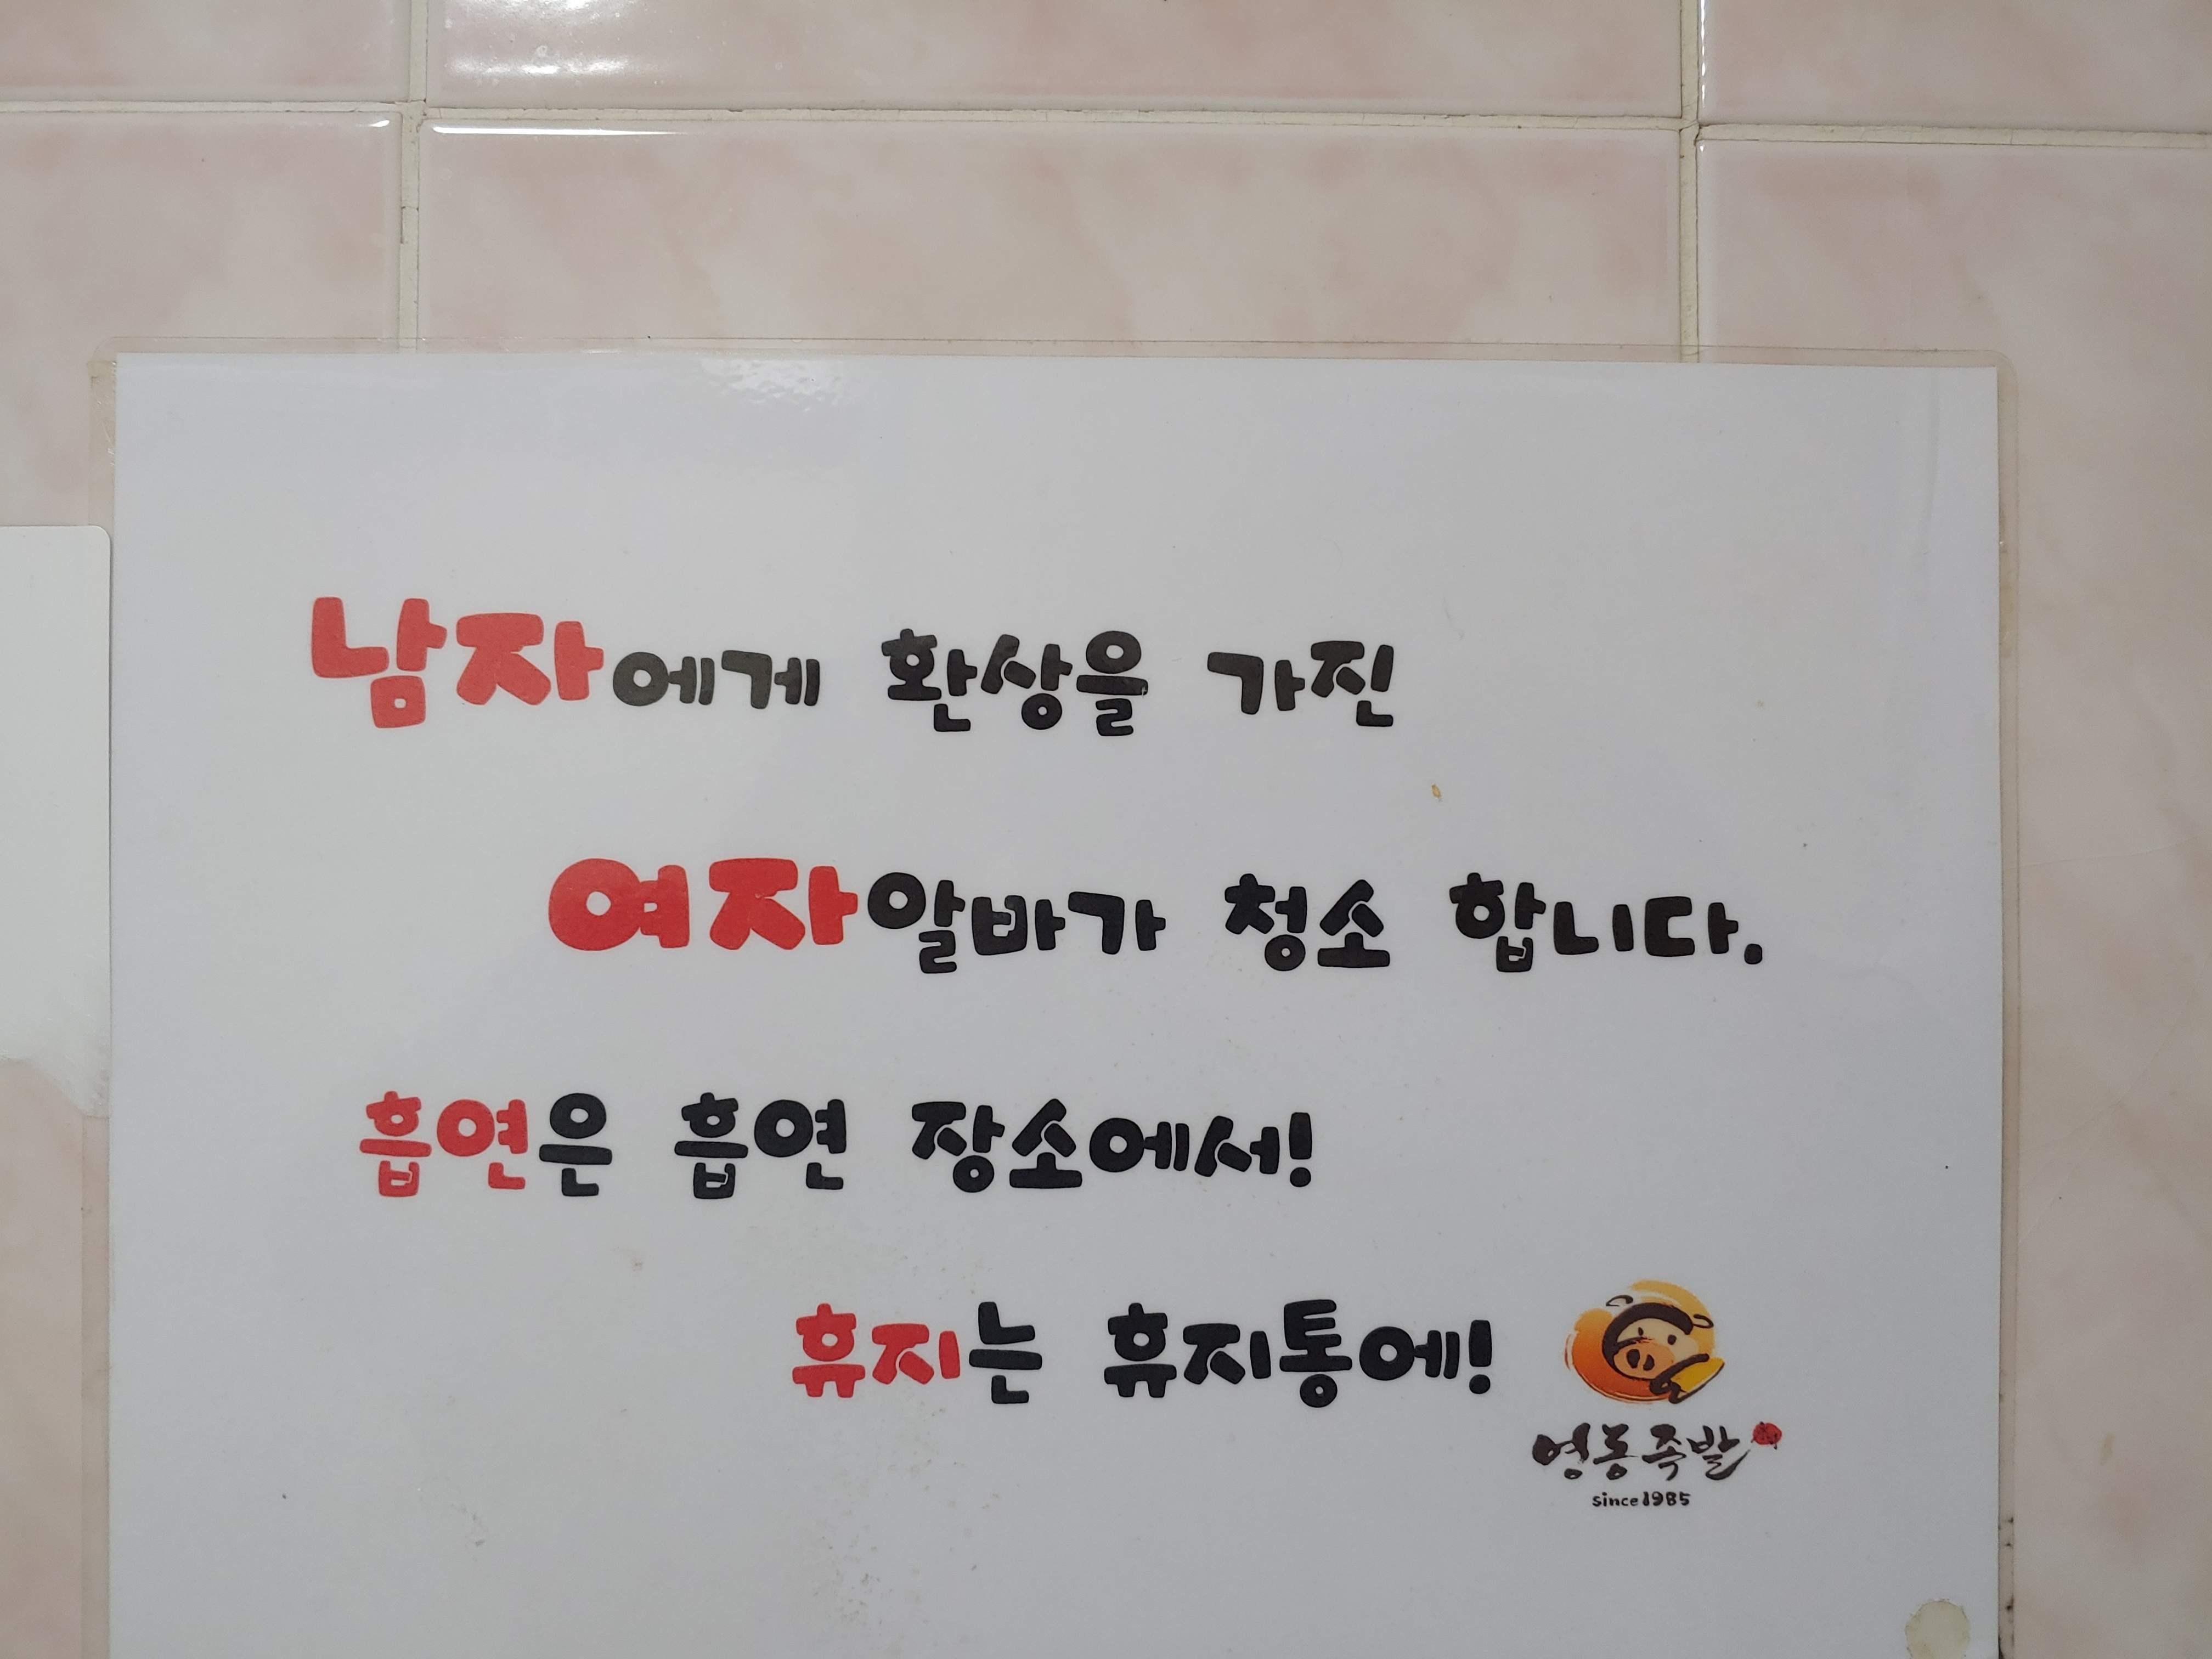 남자에게 환상을 가진
여자알바가 청소 합니다.
흡연은 흡연 장소에서!
휴지는 휴지통에!
영동족발
since1985